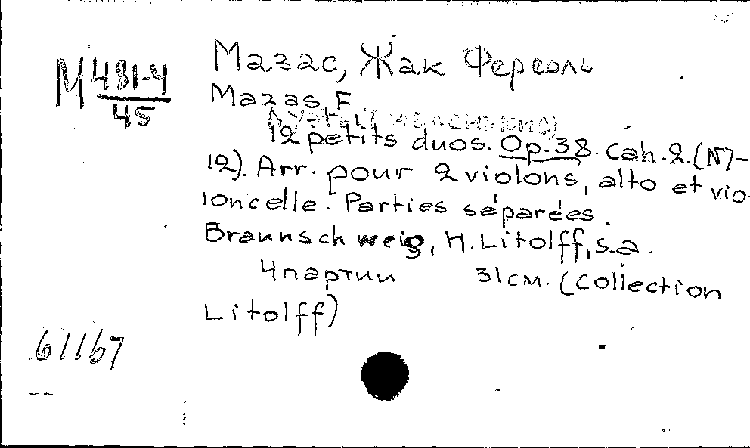 М 481-4
45
Мазас, Жак Фереоль
Mazas, F.
12 petits duos. Op. 38. Cah. 2. (N 7-
12). Arr. pour 2 violons, alto et vio-
loncelle. Parties séparées.
Braunschweig, H. Litolff, s.a.
4 партии 31 см. (Collection
Litolff)
61167